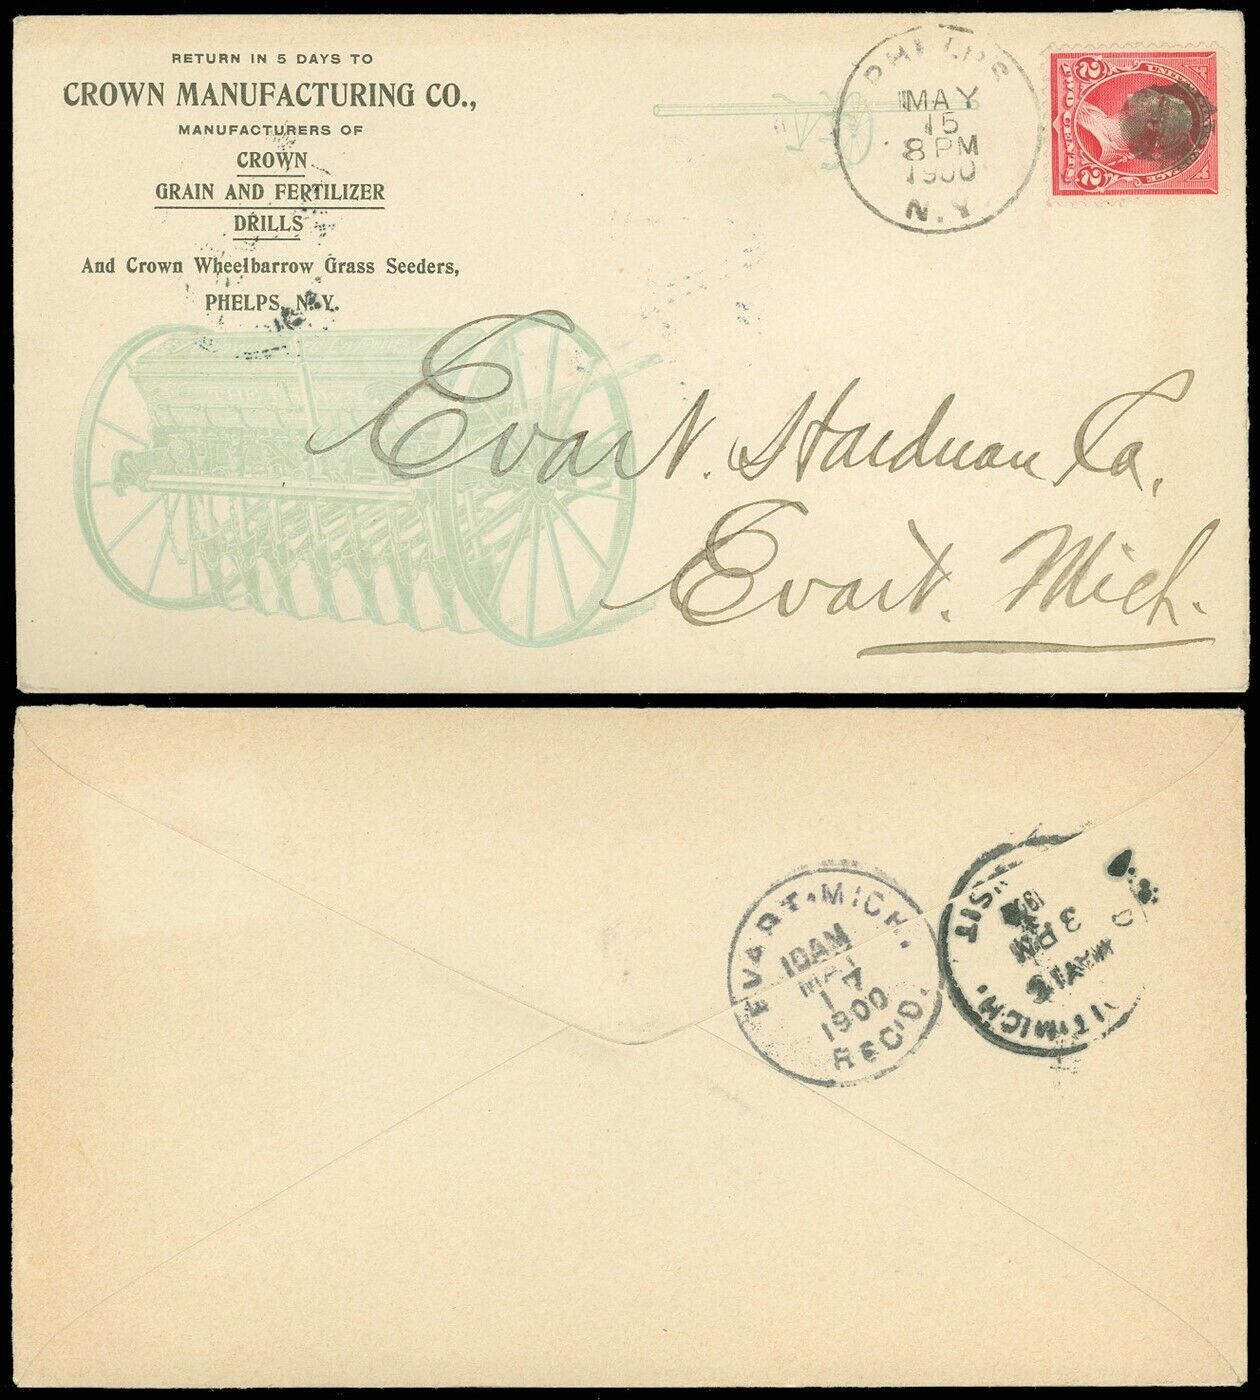 RETURN IN 5 DAYS TO
CROWN MANUFACTURING CO.,
MANUFACTURERS OF
CROWN
GRAIN AND FERTILIZER
DRILLS
And Crown Wheelbarrow Grass Seeders,
PHELPS, N.Y.
PHELPS
MAY
15
8 PM
1900
N.Y.
2 2
Evart. Hardware Co.
Evart. Mich.
EVART. MICH.
10 AM
MAY
17
1900
REC'D.
3 PM
MICH.